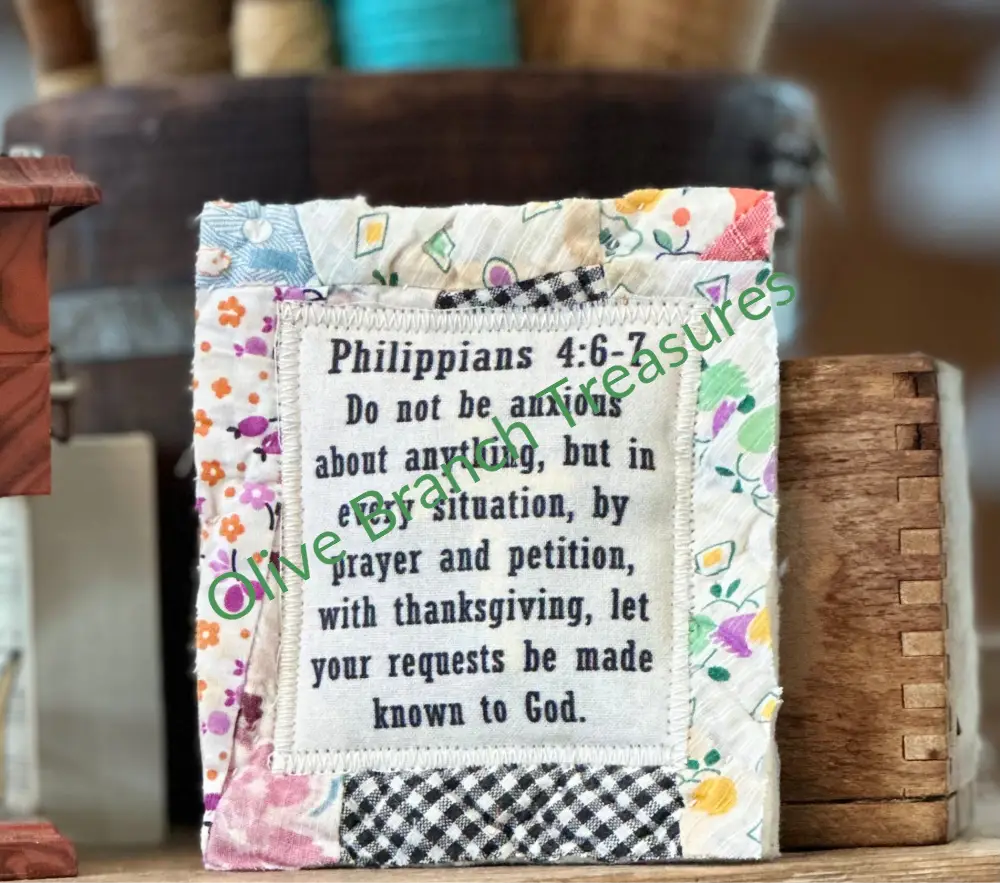 Philippians 4:6-7
Do not be anxious
about anything, but in
every situation, by
prayer and petition,
with thanksgiving, let
your requests be made
known to God.
Olive Branch Treasures